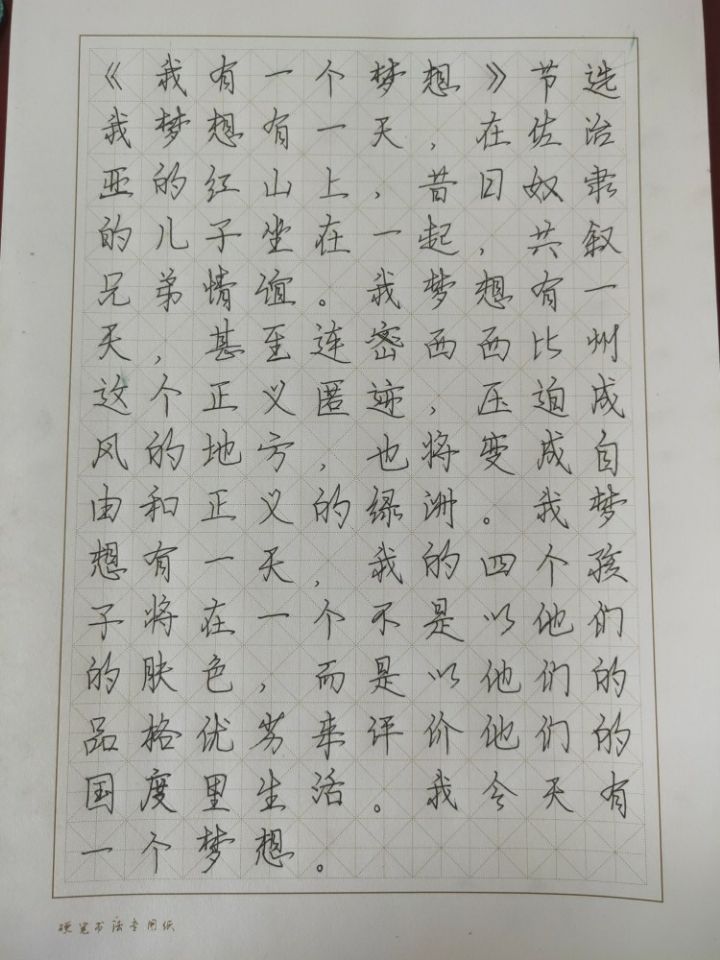 《我有一个梦想》节选
我梦想有一天，在佐治
亚的红山上，昔日奴隶
的儿子坐在一起，共叙
兄弟情谊。我梦想有一
天，甚至连密西西比州
这个正义匿迹，压迫成
风的地方，也将变成自
由和正义的绿洲。我梦
想有一天，我的四个孩
子将在一个不是以他们
的肤色，而是以他们的
品格优劣来评价他们的
国度里生活。我今天有
一个梦想。
硬笔书法专用纸